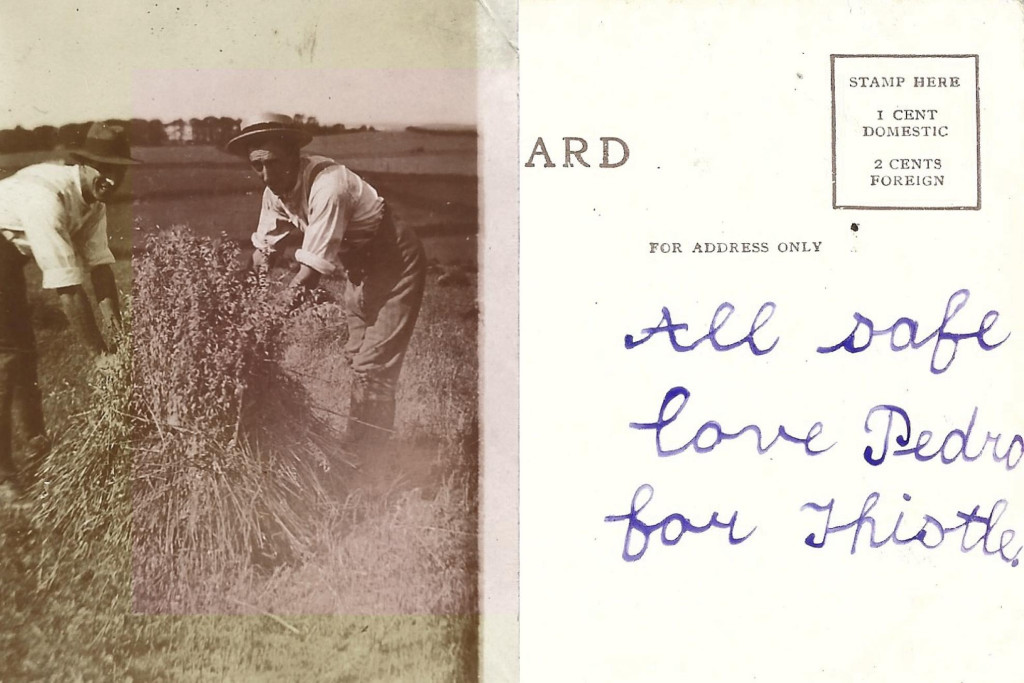 ARD
STAMP HERE
1 CENT
DOMESTIC
2 CENTS
FOREIGN
FOR ADDRESS ONLY
All safe
love Pedro
for Thistle.